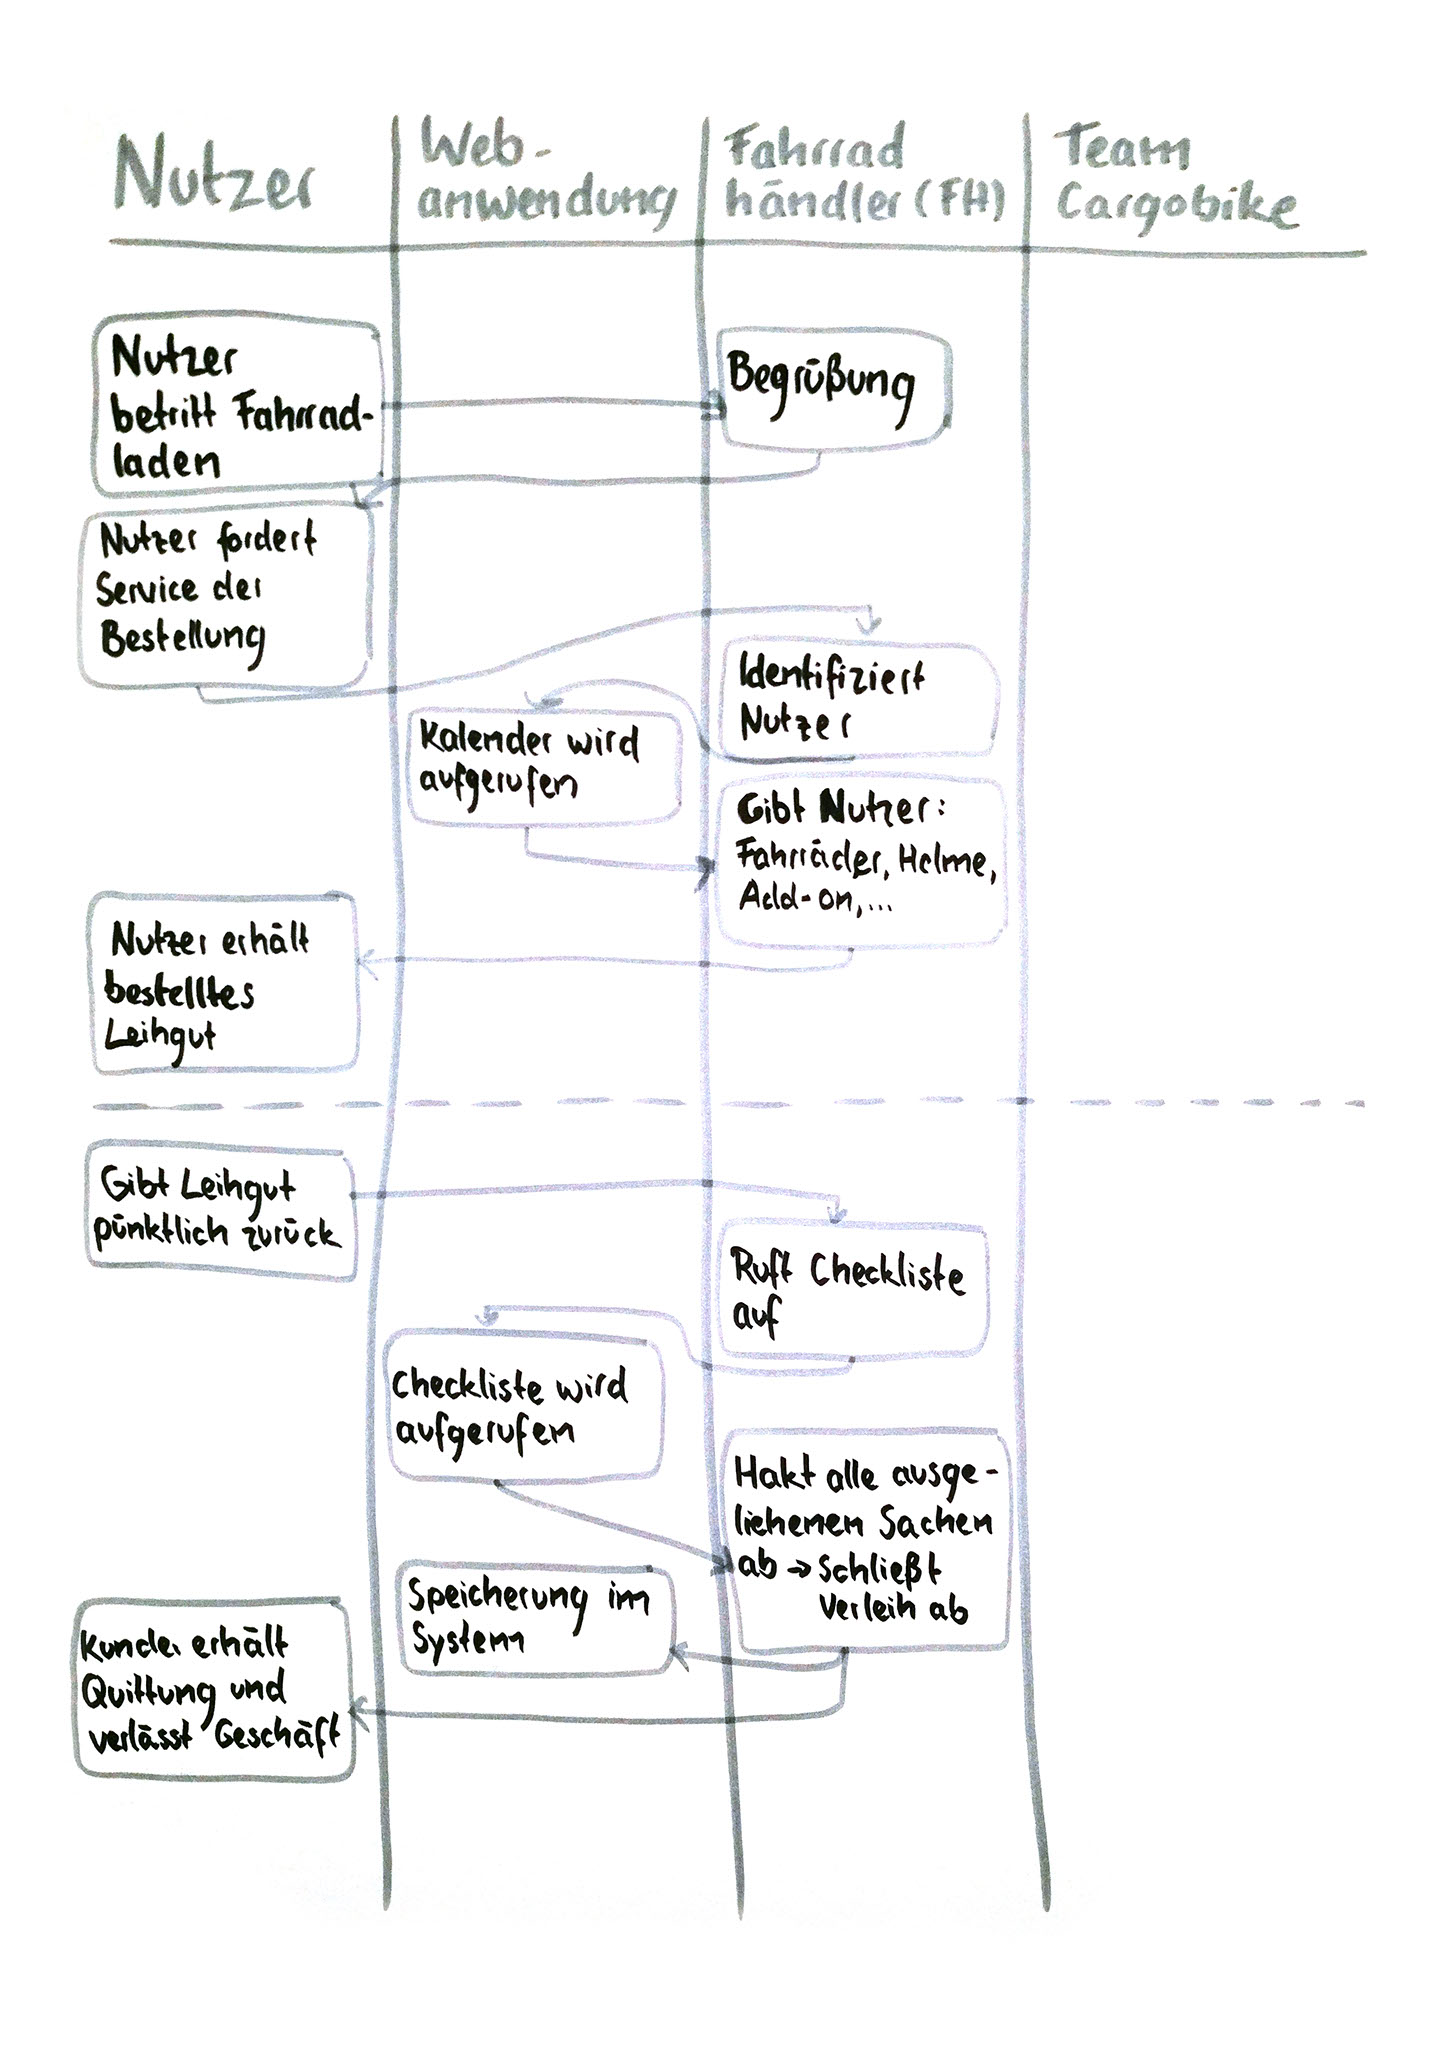 Nutzer
Web-
anwendung
Fahrrad
händler (FH)
Team
Cargobike
Nutzer
betritt Fahrrad-
laden
Begrüßung
Nutzer fordert
Service der
Bestellung
Identifiziert
Nutzer
Kalender wird
aufgerufen
Gibt Nutzer:
Fahrräder, Helme,
Add-on,...
Nutzer erhält
bestelltes
Leihgut
Gibt Leihgut
pünktlich zurück
Ruft Checkliste
auf
Checkliste wird
aufgerufen
Hakt alle ausge-
liehenen Sachen
ab → Schließt
Verleih ab
Speicherung im
System
Kunde erhält
Quittung und
verlässt Geschäft